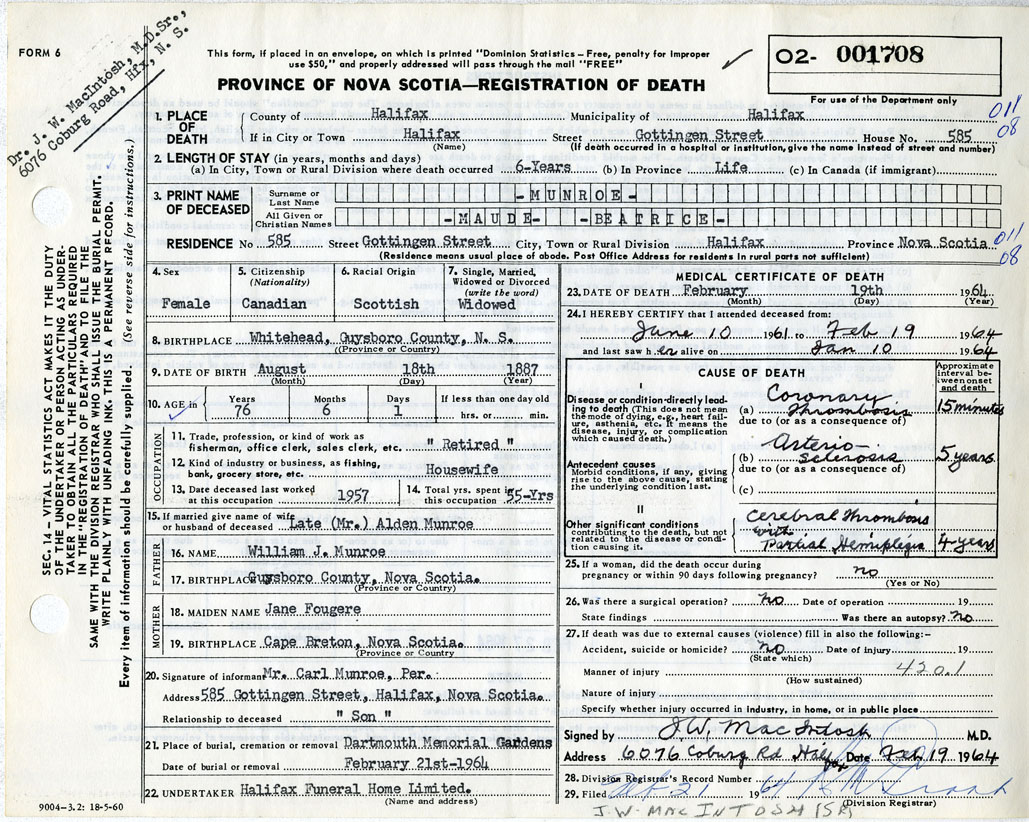 FORM 6
Dr. J. W. MacIntosh, M.D.Sr.,
6076 Coburg Road, Hfx, N. S.
This form, if placed in an envelope, on which is printed "Dominion Statistics – Free, penalty for improper
use $50," and properly addressed will pass through the mail "FREE"
PROVINCE OF NOVA SCOTIA—REGISTRATION OF DEATH
O2- 001708
For use of the Department only
011
08
1. PLACE OF DEATH
County of Halifax Municipality of Halifax
If in City or Town Halifax Street Gottingen Street House No. 585
(Name) (If death occurred in a hospital or institution, give the name instead of street and number)
2. LENGTH OF STAY (in years, months and days)
(a) In City, Town or Rural Division where death occurred 6-Years (b) In Province Life (c) In Canada (if immigrant)
3. PRINT NAME OF DECEASED
Surname or Last Name -MUNROE-
All Given or Christian Names -MAUDE- -BEATRICE-
RESIDENCE No 585 Street Gottingen Street City, Town or Rural Division Halifax Province Nova Scotia
(Residence means usual place of abode. Post Office Address for residents in rural parts not sufficient)
011
08
SEC. 14 – VITAL STATISTICS ACT MAKES IT THE DUTY
OF THE UNDERTAKER OR PERSON ACTING AS UNDER-
TAKER TO OBTAIN ALL THE PARTICULARS REQUIRED
IN THE "REGISTRATION OF DEATH" AND TO FILE THE
SAME WITH THE DIVISION REGISTRAR WHO SHALL ISSUE THE BURIAL PERMIT.
WRITE PLAINLY WITH UNFADING INK. THIS IS A PERMANENT RECORD.
Every item of information should be carefully supplied. (See reverse side for instructions.)
4. Sex
Female
5. Citizenship
(Nationality)
Canadian
6. Racial Origin
Scottish
7. Single, Married,
Widowed or Divorced
(write the word)
Widowed
8. BIRTHPLACE Whitehead, Guysboro County, N. S.
(Province or Country)
9. DATE OF BIRTH August 18th 1887
(Month) (Day) (Year)
10. AGE in Years 76 Months 6 Days 1 If less than one day old
hrs. or min.
OCCUPATION
11. Trade, profession, or kind of work as
fisherman, office clerk, sales clerk, etc. " Retired "
12. Kind of industry or business, as fishing,
bank, grocery store, etc. Housewife
13. Date deceased last worked
at this occupation 1957
14. Total yrs. spent in
this occupation 55-Yrs
15. If married give name of wife
or husband of deceased Late (Mr.) Alden Munroe
FATHER
16. NAME William J. Munroe
17. BIRTHPLACE Guysboro County, Nova Scotia.
(Province or Country)
MOTHER
18. MAIDEN NAME Jane Fougere
19. BIRTHPLACE Cape Breton, Nova Scotia.
(Province or Country
20. Signature of informant Mr. Carl Munroe, Per.
Address 585 Gottingen Street, Halifax, Nova Scotia.
Relationship to deceased " Son "
21. Place of burial, cremation or removal Dartmouth Memorial Gardens
Date of burial or removal February 21st-1964
22. UNDERTAKER Halifax Funeral Home Limited.
(Name and address)
9004–3.2: 18-5-60
MEDICAL CERTIFICATE OF DEATH
23. DATE OF DEATH February 19th 1964
(Month) (Day) (Year)
24. I HEREBY CERTIFY that I attended deceased from:
June 10 1961 to Feb 19 1964
and last saw her alive on Jan 10 1964
CAUSE OF DEATH
Approximate
interval be-
tween onset
and death
I
Disease or condition directly lead-
ing to death (This does not mean
the mode of dying, e.g., heart fail-
ure, asthenia, etc. It means the
disease, injury, or complication
which caused death.)
(a) Coronary Thrombosis 15 minutes
due to (or as a consequence of)
Antecedent causes
Morbid conditions, if any, giving
rise to the above cause, stating
the underlying condition last.
(b) Arterio-Sclerosis 5 years
due to (or as a consequence of)
(c)
II
Other significant conditions
contributing to the death, but not
related to the disease or condi-
tion causing it.
Cerebral Thrombosis
with
Partial Hemiplegia 4-years
25. If a woman, did the death occur during
pregnancy or within 90 days following pregnancy? no
(Yes or No)
26. Was there a surgical operation? no Date of operation 19
State findings Was there an autopsy? no
27. If death was due to external causes (violence) fill in also the following:–
Accident, suicide or homicide? no Date of injury 19
(State which)
Manner of injury 420.1
(How sustained)
Nature of injury
Specify whether injury occurred in industry, in home, or in public place
Signed by J.W. MacIntosh M.D.
Address 6076 Coburg Rd Halifax Date Feb 19 1964
28. Division Registrar's Record Number
29. Filed Feb 21 1964
(Division Registrar)
J.W. MACINTOSH (SR)